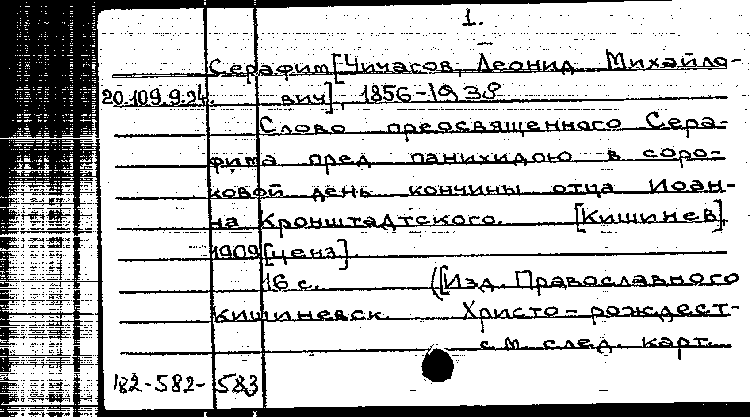 1.
Серафим [Чичагов, Леонид Михайло-
20.109.9.24. вич], 1856-1938
Слово преосвященного Сера-
фима пред панихидою в соро-
ковой день кончины отца Иоан-
на Кронштадтского. [Кишинев],
1909 [ценз].
16 с. ([Изд. Православного
Кишиневск. Христо-рождест-
см. след. карт.
182-582-583